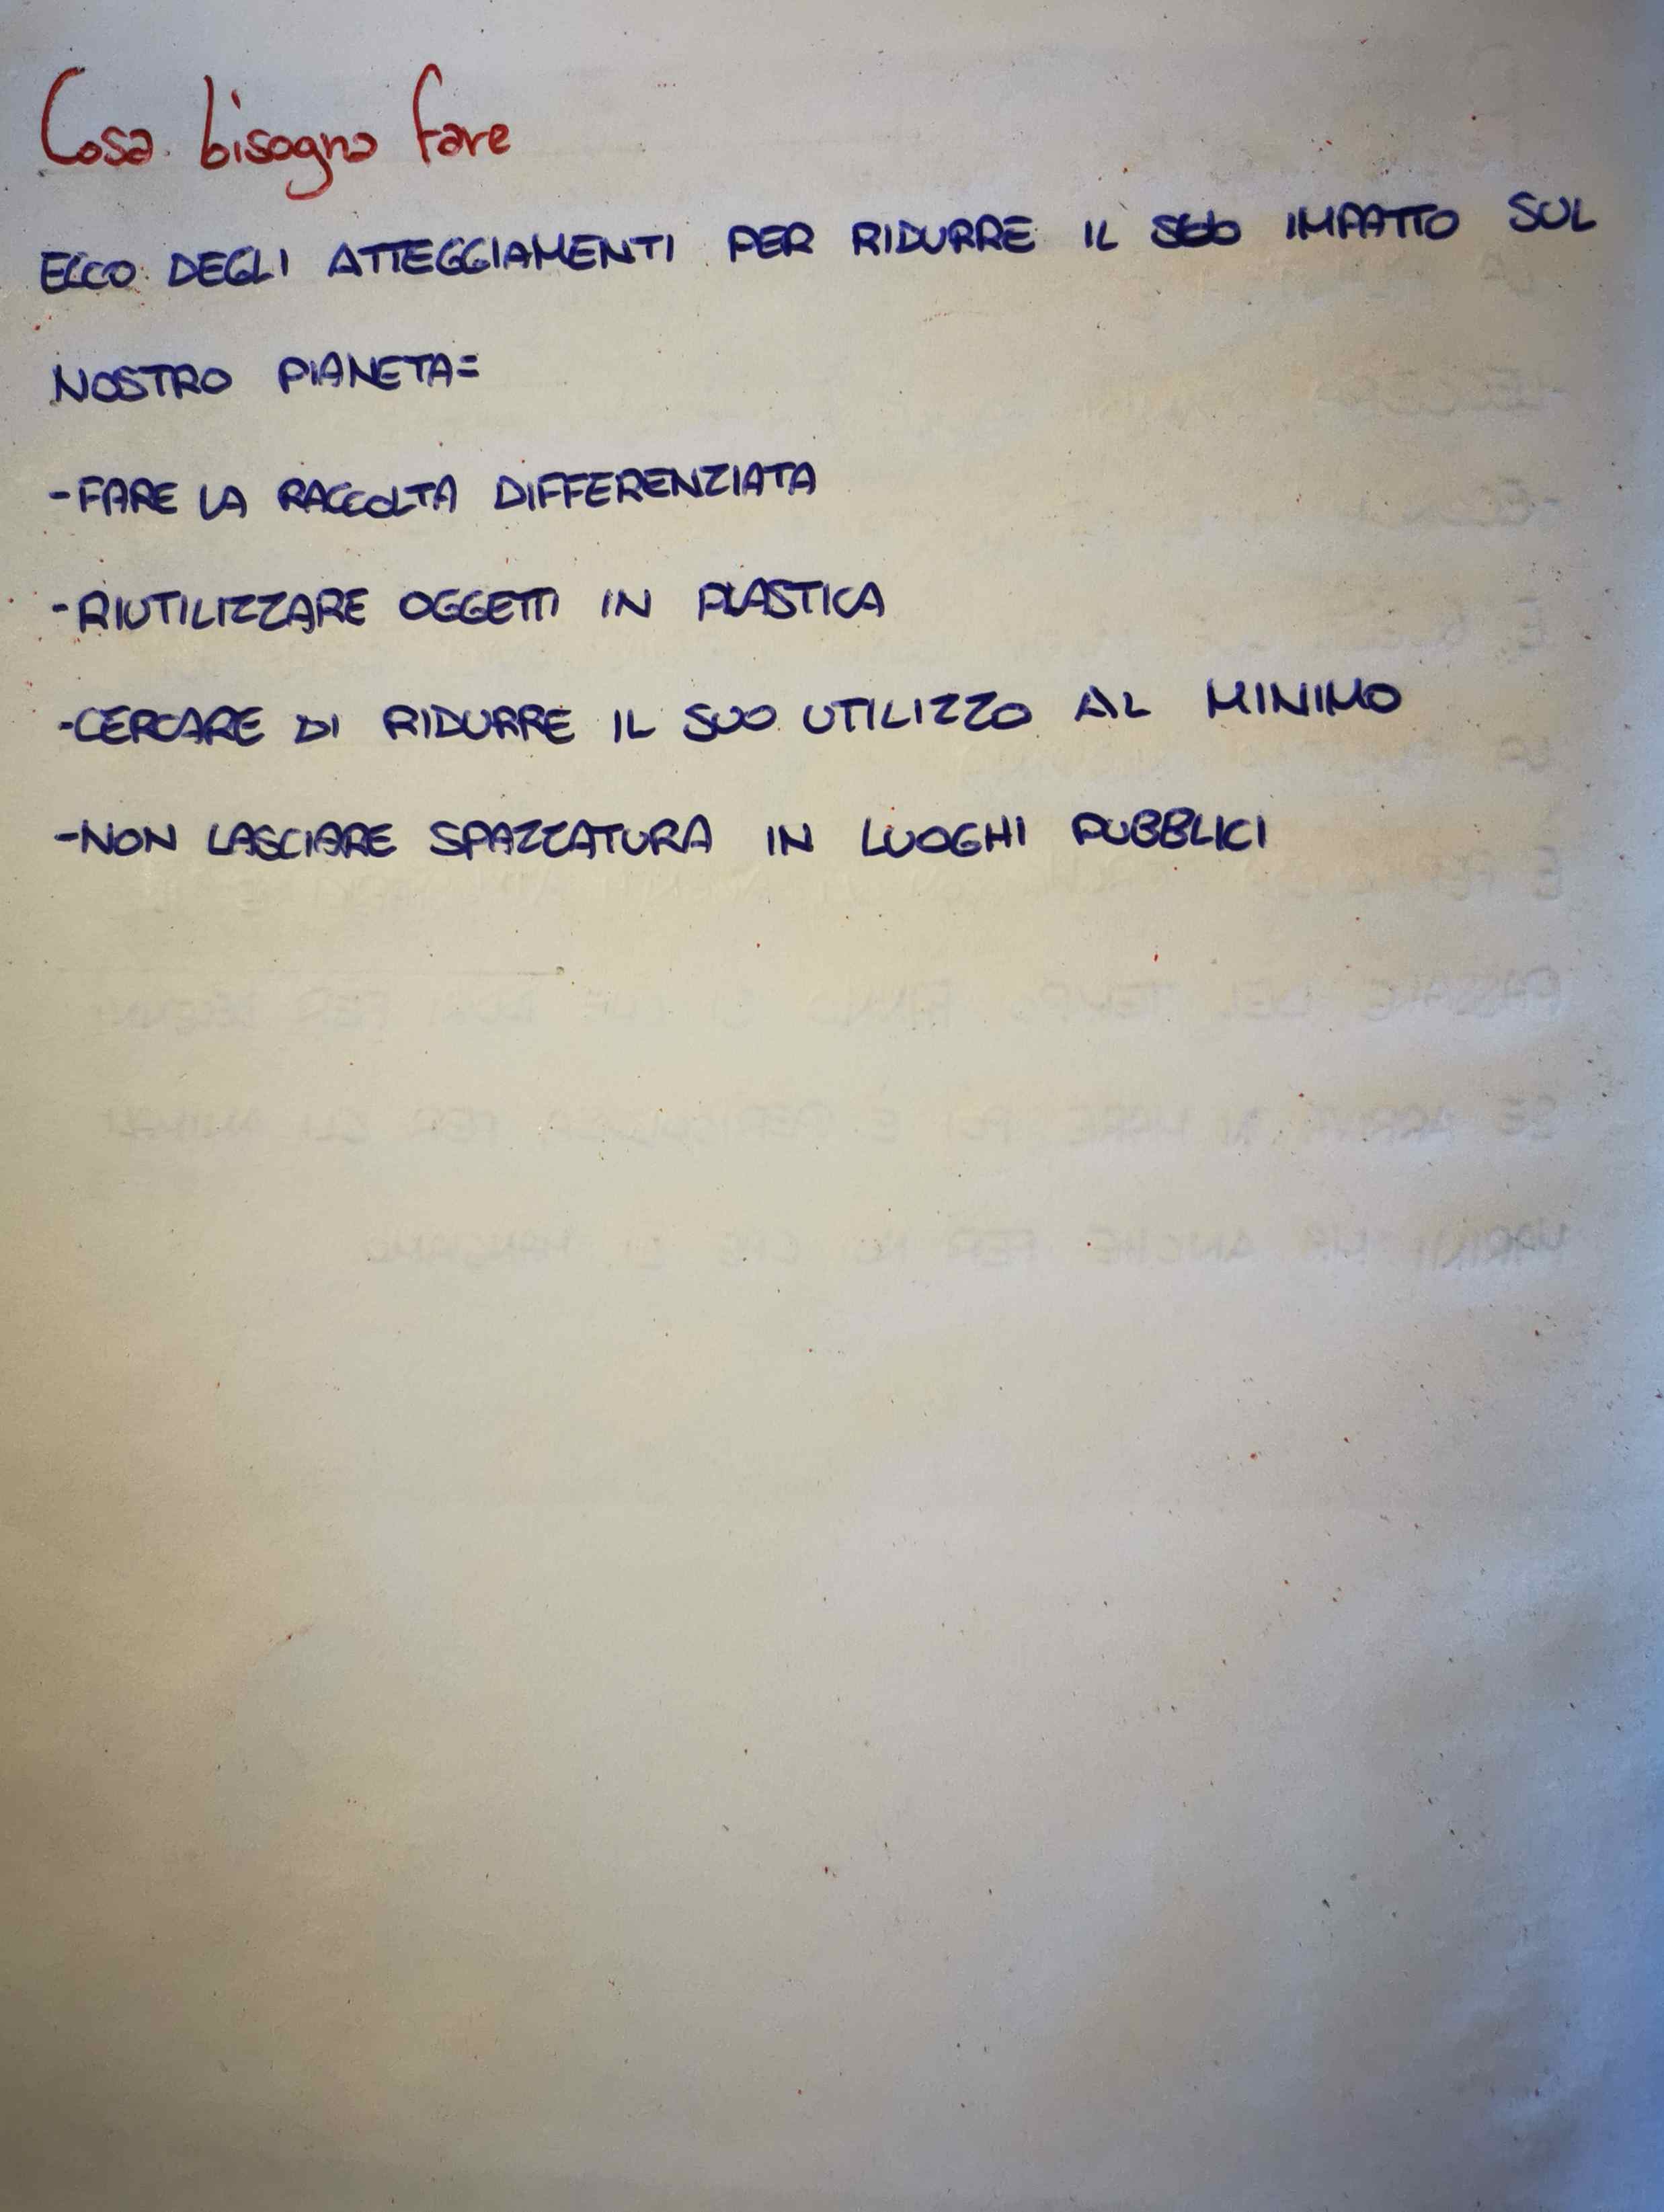 Cosa bisogna fare
ECCO DEGLI ATTEGGIAMENTI PER RIDURRE IL SUO IMPATTO SUL
NOSTRO PIANETA=
-FARE LA RACCOLTA DIFFERENZIATA
-RIUTILIZZARE OGGETTI IN PLASTICA
-CERCARE DI RIDURRE IL SUO UTILIZZO AL MINIMO
-NON LASCIARE SPAZZATURA IN LUOGHI PUBBLICI